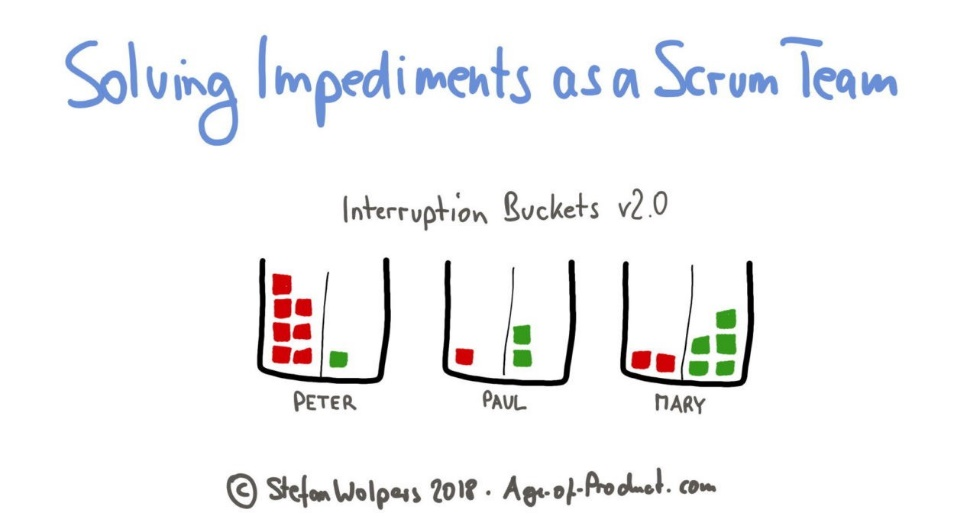 Solving Impediments as a Scrum Team
Interruption Buckets v2.0
PETER PAUL MARY
© Stefan Wolpers 2018 · Age-of-Product.com